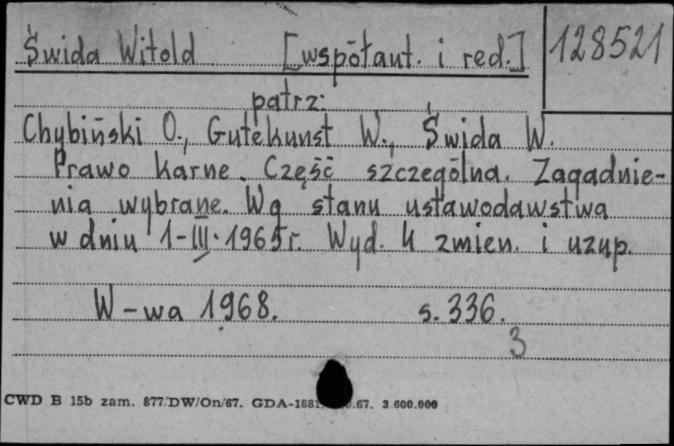 Świda Witold [współaut. i red.] 128521
patrz:
Chybiński O., Gutekunst W., Świda W.
Prawo karne. Część szczególna. Zagadnie-
nia wybrane. Wg stanu ustawodawstwa
w dniu 1-III-1965r. Wyd. 4 zmien. i uzup.
W-wa 1968. s. 336.
3
CWD B 15b zam. 877/DW/On/67. GDA-1881. .67. 3.600.000